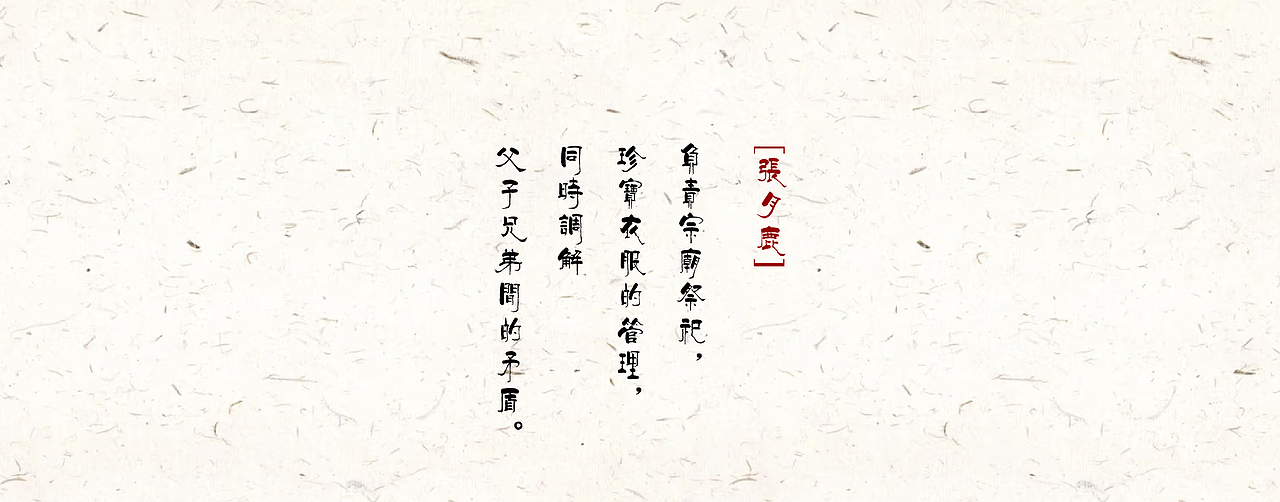 [張夕鹿]
負責宗廟祭祀，
珍寶衣服的管理，
同時調解
父子兄弟間的矛盾。